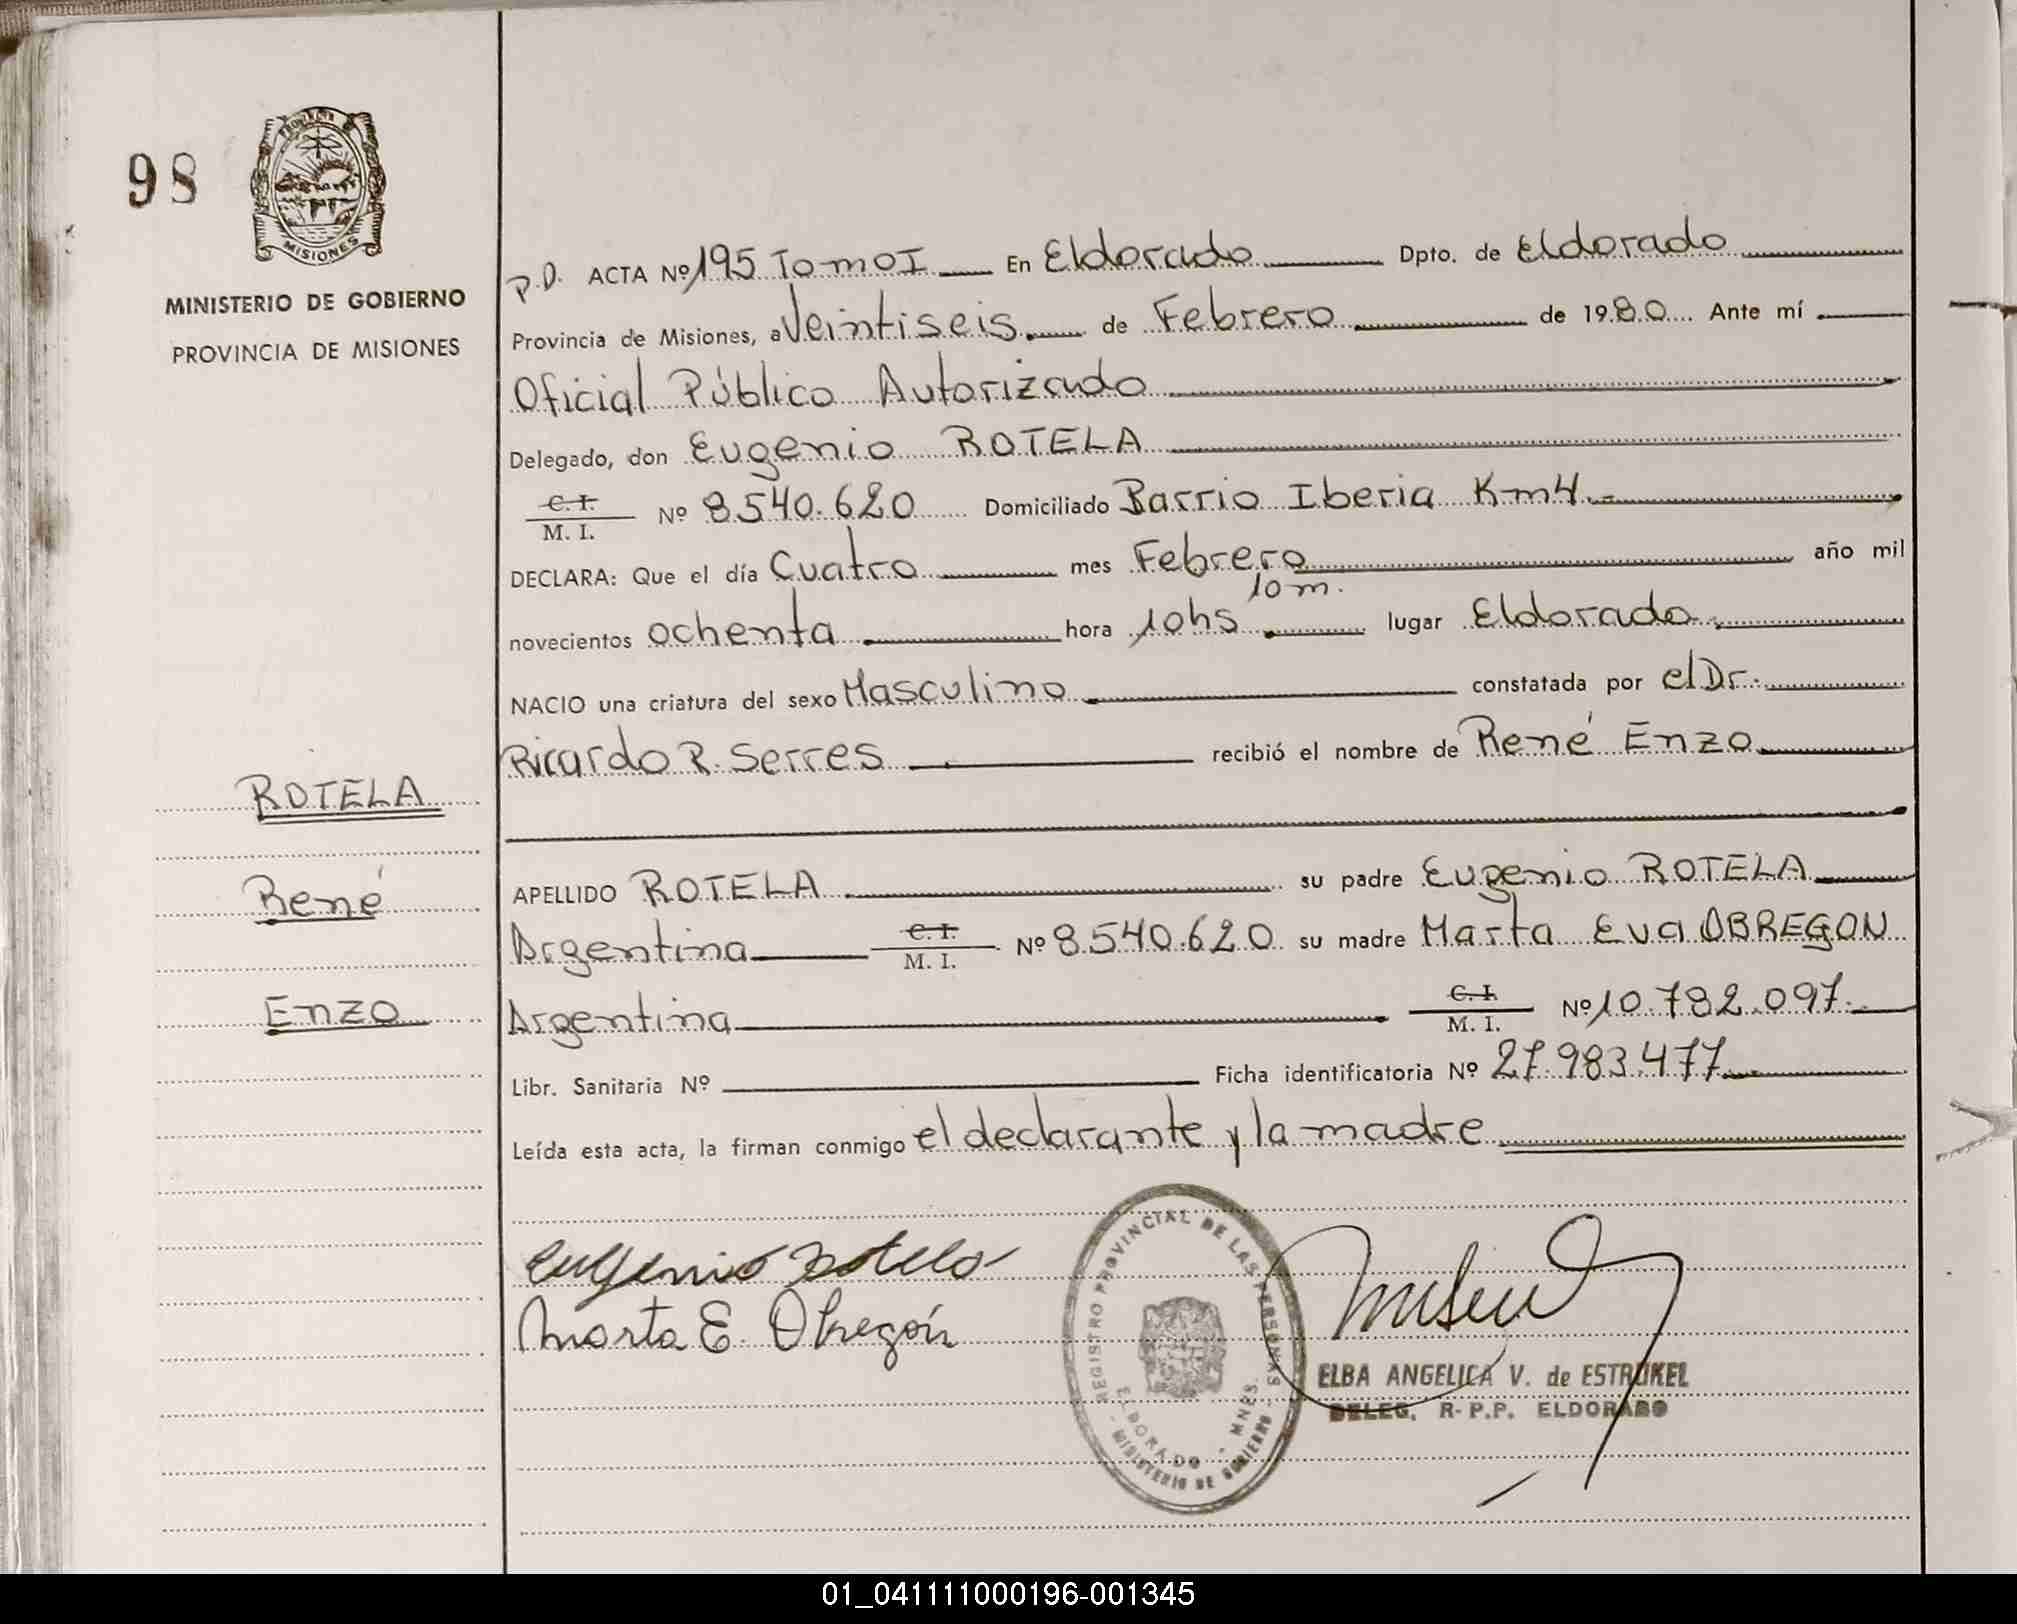 98
PROVINCIA
MISIONES
MINISTERIO DE GOBIERNO
PROVINCIA DE MISIONES
P.D. ACTA Nº 195 Tomo I En Eldorado Dpto. de Eldorado
Provincia de Misiones, a Veintiseis de Febrero de 1980 Ante mí
Oficial Público Autorizado
Delegado, don Eugenio ROTELA
C. I.
M. I. Nº 8.540.620 Domiciliado Barrio Iberia Km 4.-
DECLARA: Que el día Cuatro mes Febrero año mil
novecientos ochenta hora 10hs 10m. lugar Eldorado
NACIO una criatura del sexo Masculino constatada por el Dr.
Ricardo R. Serres recibió el nombre de René Enzo
ROTELA
René
Enzo
APELLIDO ROTELA su padre Eugenio ROTELA
Argentina C. I. M. I. Nº 8.540.620 su madre Marta Eva OBREGON
Argentina C. I. M. I. Nº 10.782.097.
Libr. Sanitaria Nº Ficha identificatoria Nº 27.983.477
Leída esta acta, la firman conmigo el declarante y la madre
Eugenio Rotela
Marta E. Obregón
REGISTRO PROVINCIAL DE LAS PERSONAS
ELDORADO - MNES.
MINISTERIO DE GOBIERNO
ELBA ANGELICA V. de ESTRUKEL
DELEG. R-P.P. ELDORADO
01_041111000196-001345